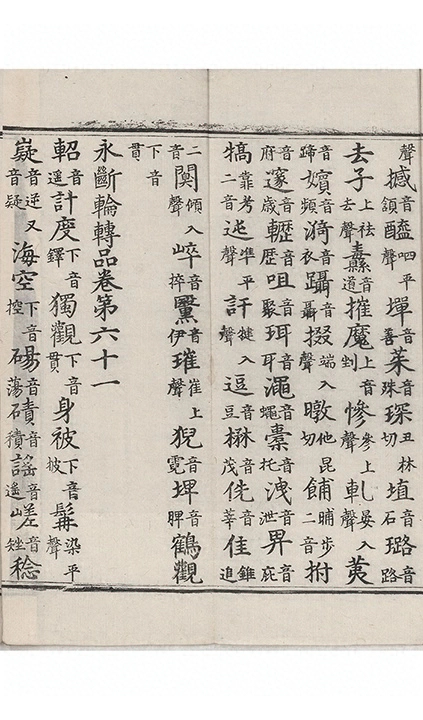 聲撼音頷醯呬平聲墠音善茱音殊琛丑林切埴音石璐音路
去子上祛去聲纛音道摧魔上音剉慘參上聲軋晏入聲荑
音蹄嬪音頻漪音衣躡音聶掇端入聲暾他昆切餔晡步二音拊
音府邃音歲轣音歷咀音聚珥音耳澠音蠅橐音托洩音泄畀音庇
犒靠考二音迍準平聲訐揵入聲逗音豆楙音茂侁音莘隹錐追
二音闃傾入聲崒音捽黳音伊璀崔上聲猊音霓埤音脾鶴觀
下音貫
永斷輪轉品卷第六十一
軺音遙計度下音鐸獨觀下音貫身被下音披髯染平聲
嶷音逆又音疑海空下音控碭音蕩磧音積謠音遙嵯音矬稔